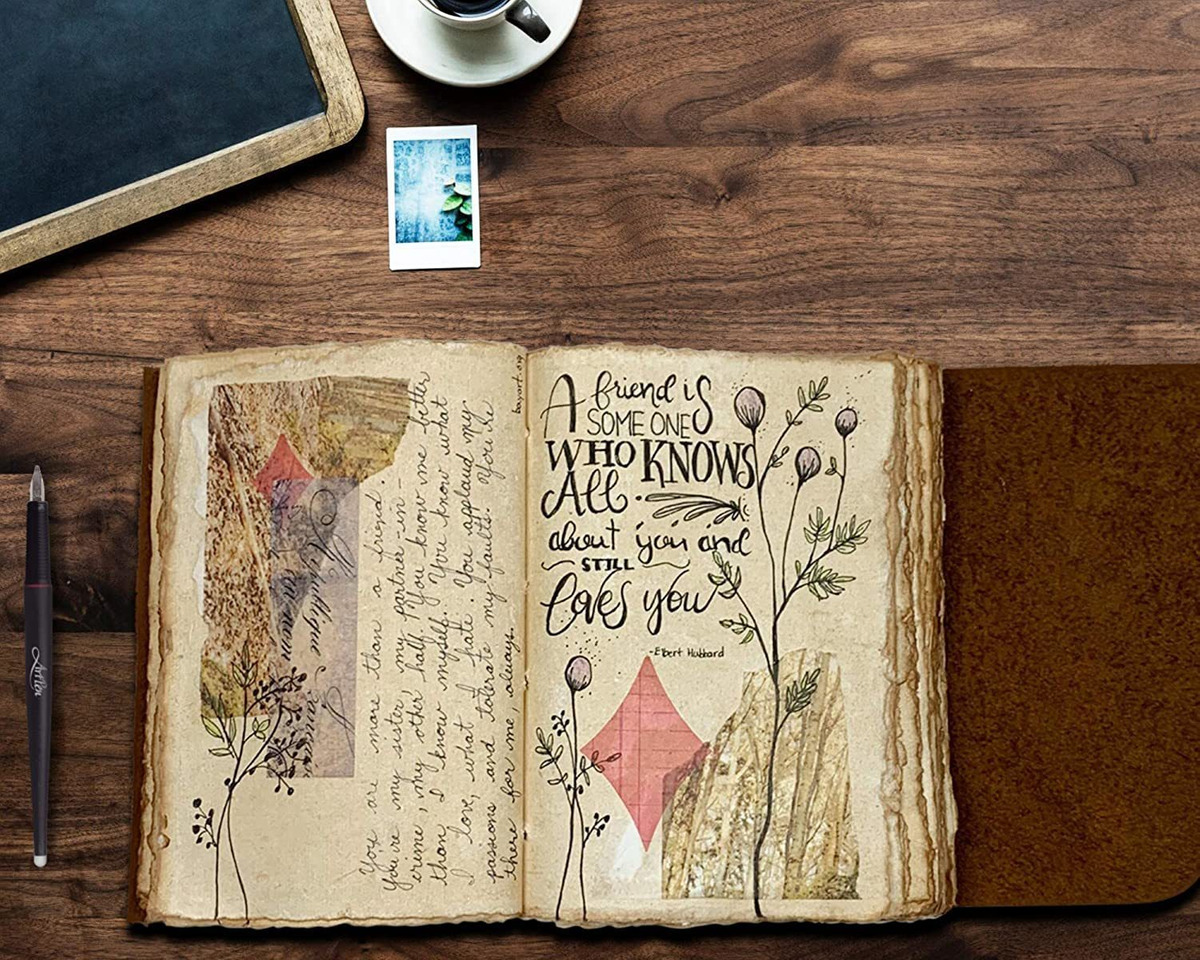 You are more than a friend.
You're my sister, my partner-in-
crime, my other half. You know me better
than I know myself. You know what
I love, what I hate. You applaud my
passions and tolerate my faults. You're
there for me, always.
bayart.org
A friend is
SOME ONE
WHO KNOWS
All
about you and
STILL
loves you
-Elbert Hubbard
ArtPen